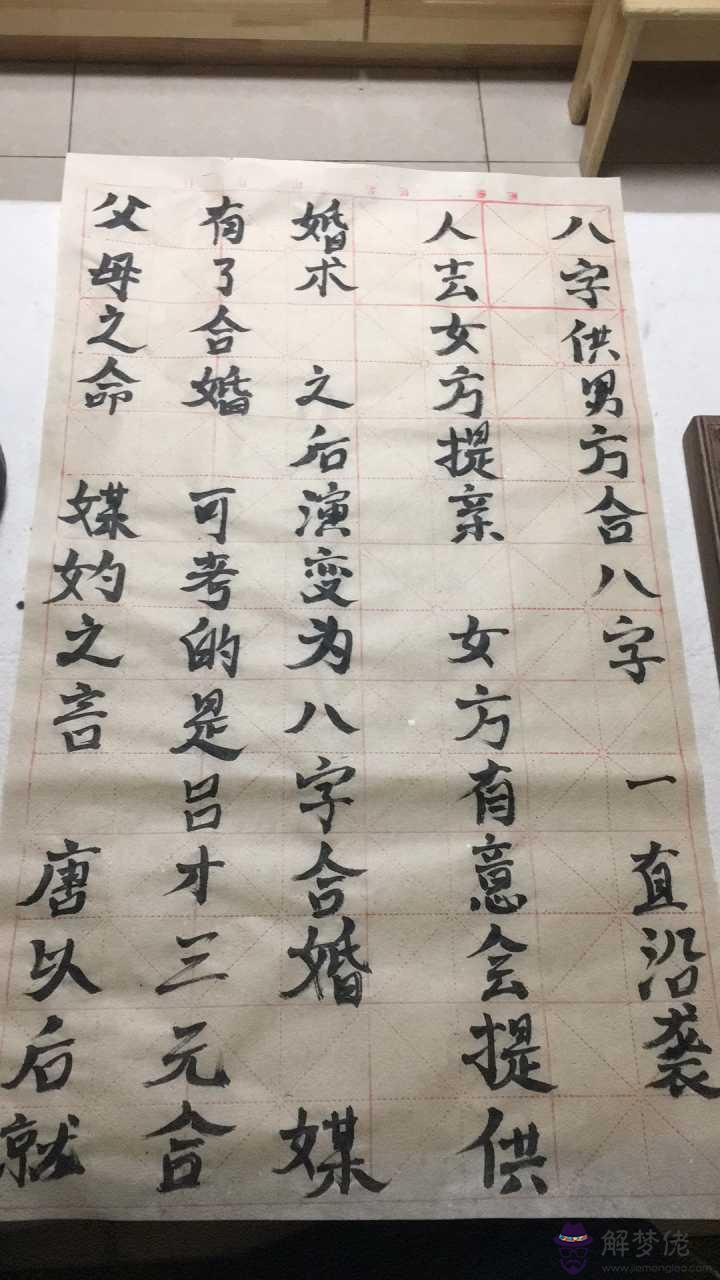 父母之命 媒妁之言 唐以后就
有了合婚 可考的是吕才三元合
婚术 之后演变为八字合婚 媒
人去女方提亲 女方有意会提供
八字供男方合八字 一直沿袭
解梦佬
www.jiemenglao.com